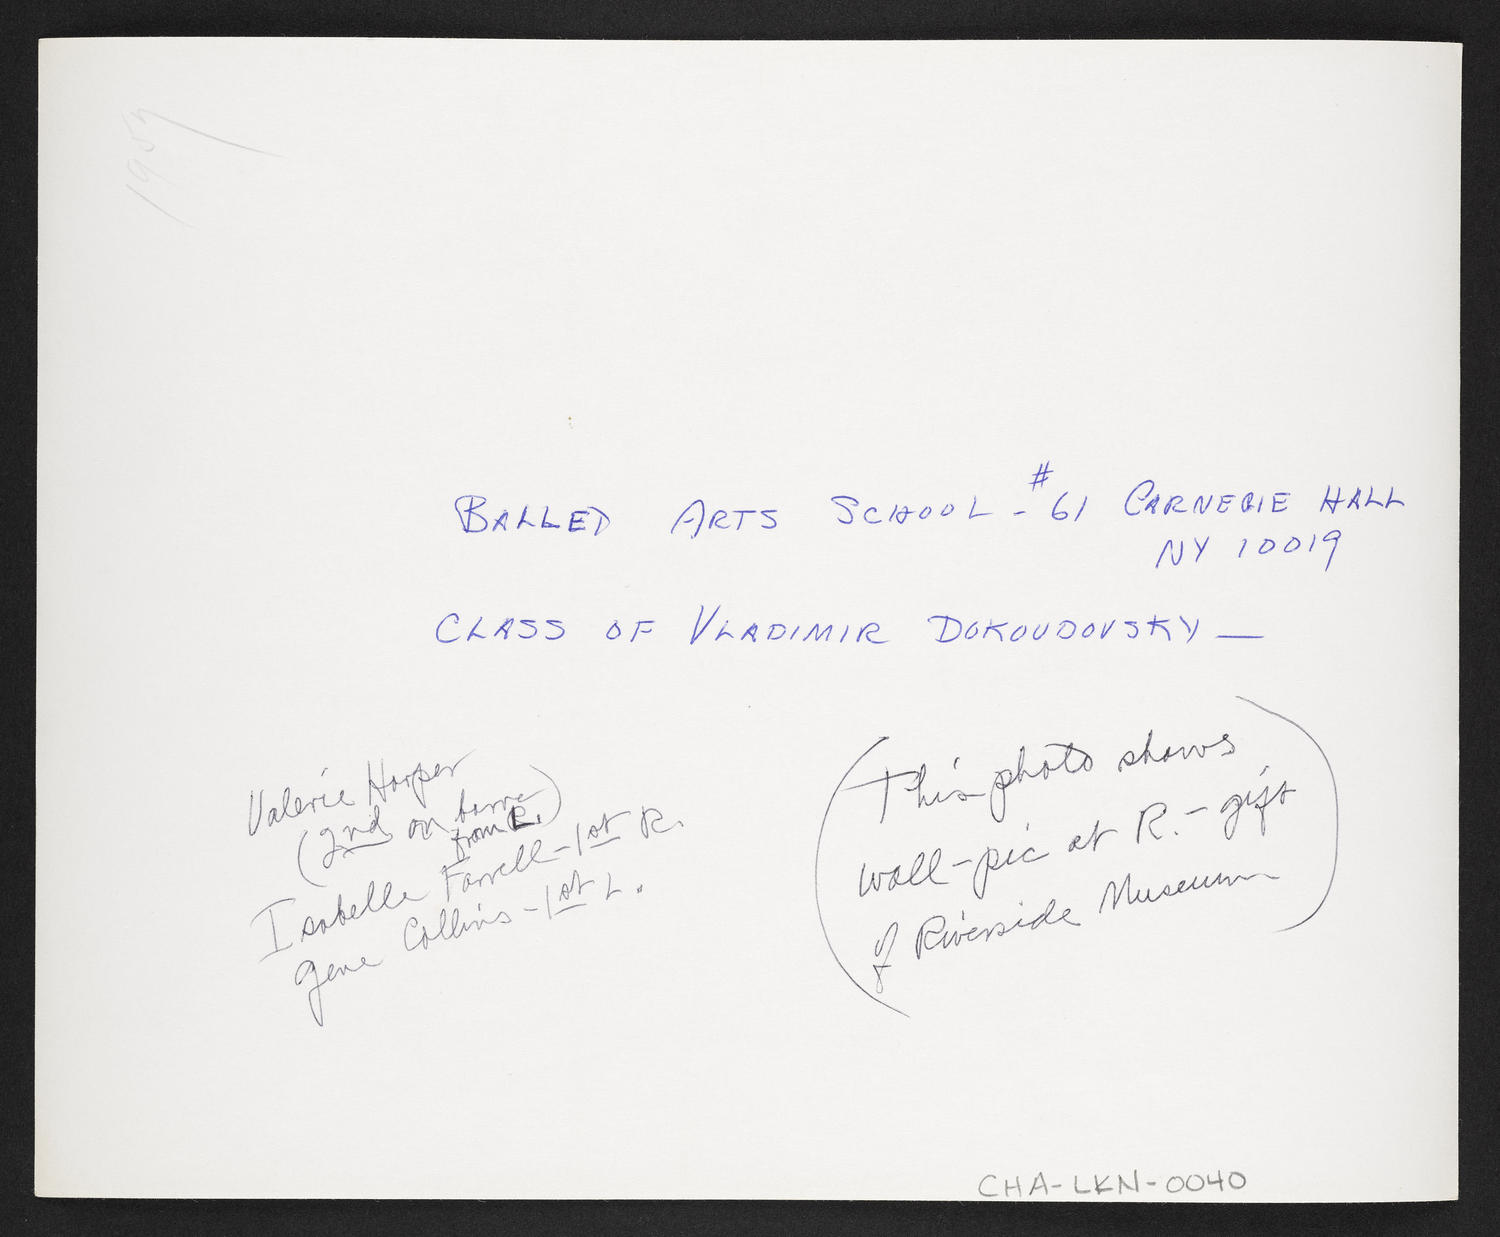 1957
BALLED ARTS SCHOOL - #61 CARNEGIE HALL
NY 10019
CLASS OF VLADIMIR DOKOUDOVSKY —
Valerie Harper
(2nd on barre
from L.)
Isabelle Farrell - 1st R.
Gene Collins - 1st L.
(This photo shows
wall-pic at R. - gift
of Riverside Museum)
CHA-LKN-0040